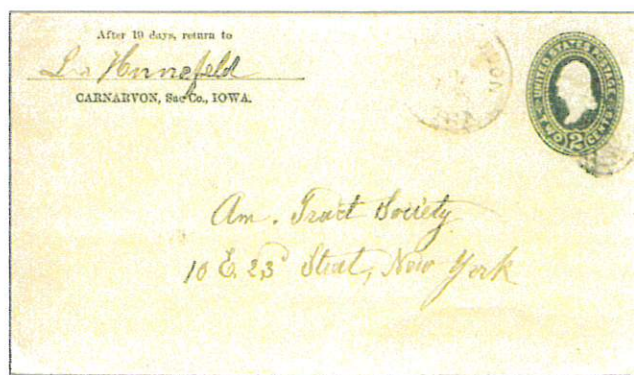 After 10 days, return to
Hunnefeld
CARNARVON, Sac Co., IOWA.
UNITED STATES POSTAGE
TWO 2 CENTS
Am. Tract Society
10 E. 23d Street, New York